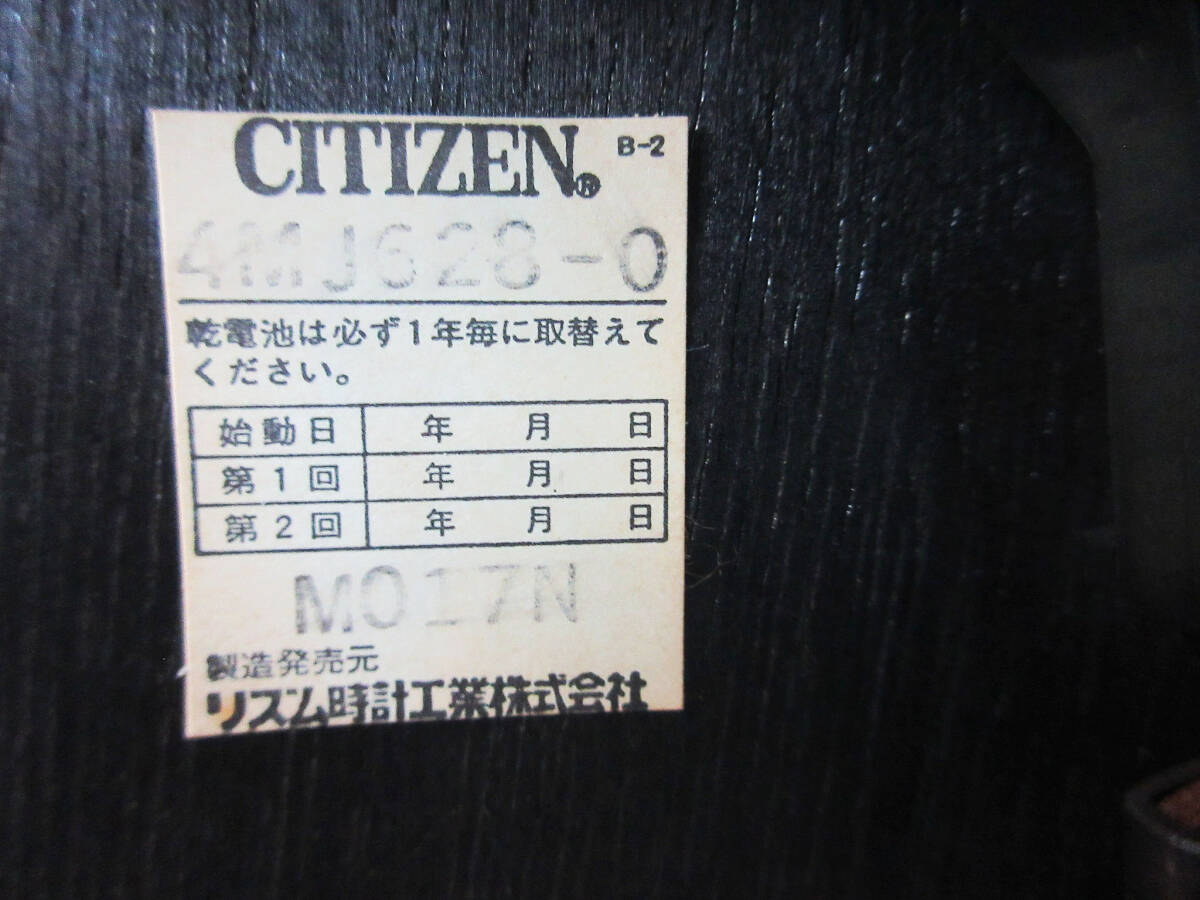 CITIZEN® B-2
4MJ628-0
乾電池は必ず1年毎に取替えて
ください。
始動日 年 月 日
第1回 年 月 日
第2回 年 月 日
M017N
製造発売元
リズム時計工業株式会社